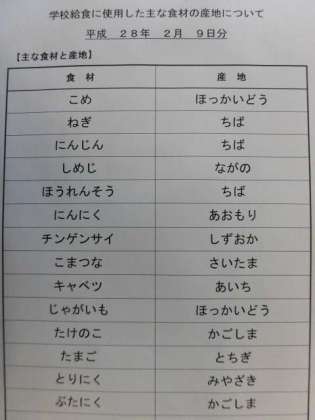 学校給食に使用した主な食材の産地について
平成　２８年　２月　９日分
【主な食材と産地】
食　材　産　地
こめ　ほっかいどう
ねぎ　ちば
にんじん　ちば
しめじ　ながの
ほうれんそう　ちば
にんにく　あおもり
チンゲンサイ　しずおか
こまつな　さいたま
キャベツ　あいち
じゃがいも　ほっかいどう
たけのこ　かごしま
たまご　とちぎ
とりにく　みやざき
ぶたにく　かごしま